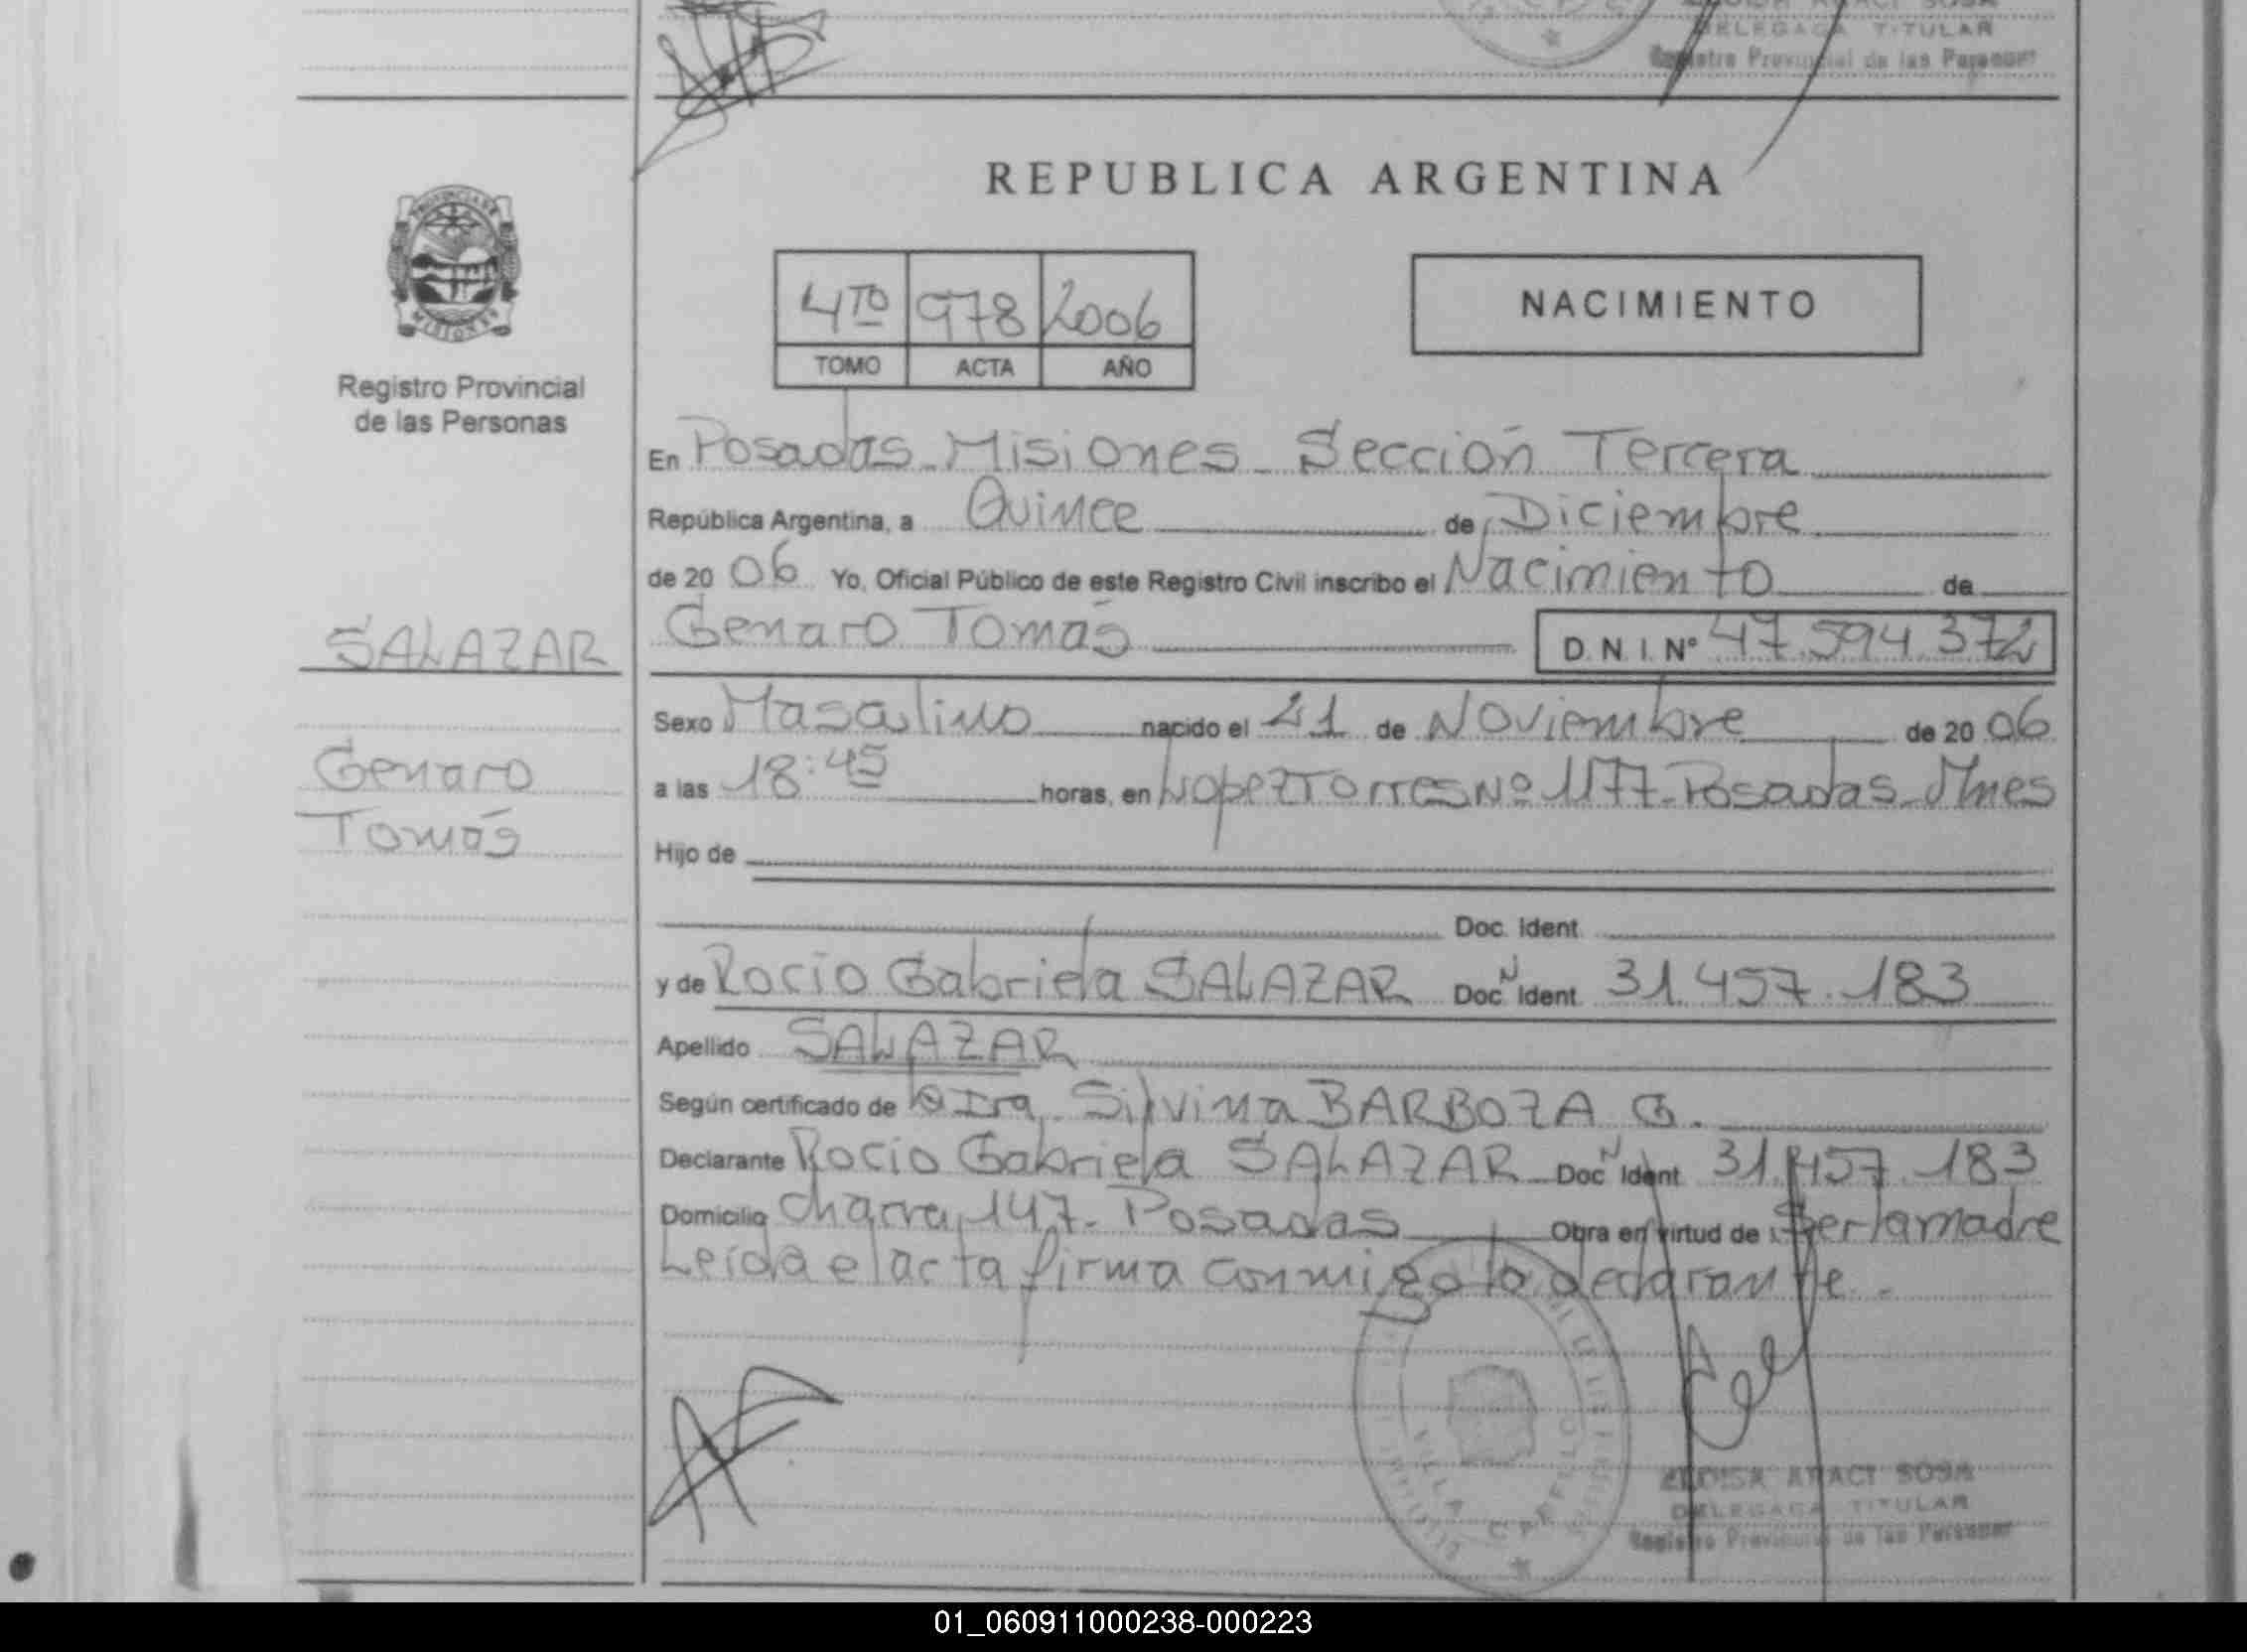 DELEGADA TITULAR
Registro Provincial de las Personas
REPUBLICA ARGENTINA
PROVINCIA DE
MISIONES
Registro Provincial
de las Personas
4TO 978 2006
TOMO ACTA AÑO
NACIMIENTO
En Posadas - Misiones - Sección Tercera
República Argentina, a Quince de Diciembre
de 20 06 Yo, Oficial Público de este Registro Civil inscribo el Nacimiento de
SALAZAR
Genaro Tomás D.N.I. Nº 47.594.372
Sexo Masculino nacido el 21 de Noviembre de 20 06
Genaro
Tomás
a las 18:45 horas, en Lopez Torres Nº 1177 - Posadas - Mnes
Hijo de
Doc. Ident.
y de Rocío Gabriela SALAZAR Doc N Ident 31.457.183
Apellido SALAZAR
Según certificado de la Dra. Silvina BARBOZA G.
Declarante Rocio Gabriela SALAZAR Doc N Ident 31.457.183
Domicilio Chacra 147 - Posadas Obra en virtud de Ser la madre
Leída el acta firma conmigo la declarante.
VILLA CABELLO
ELOISA ARACI SOSA
DELEGADA TITULAR
Registro Provincial de las Personas
01_060911000238-000223